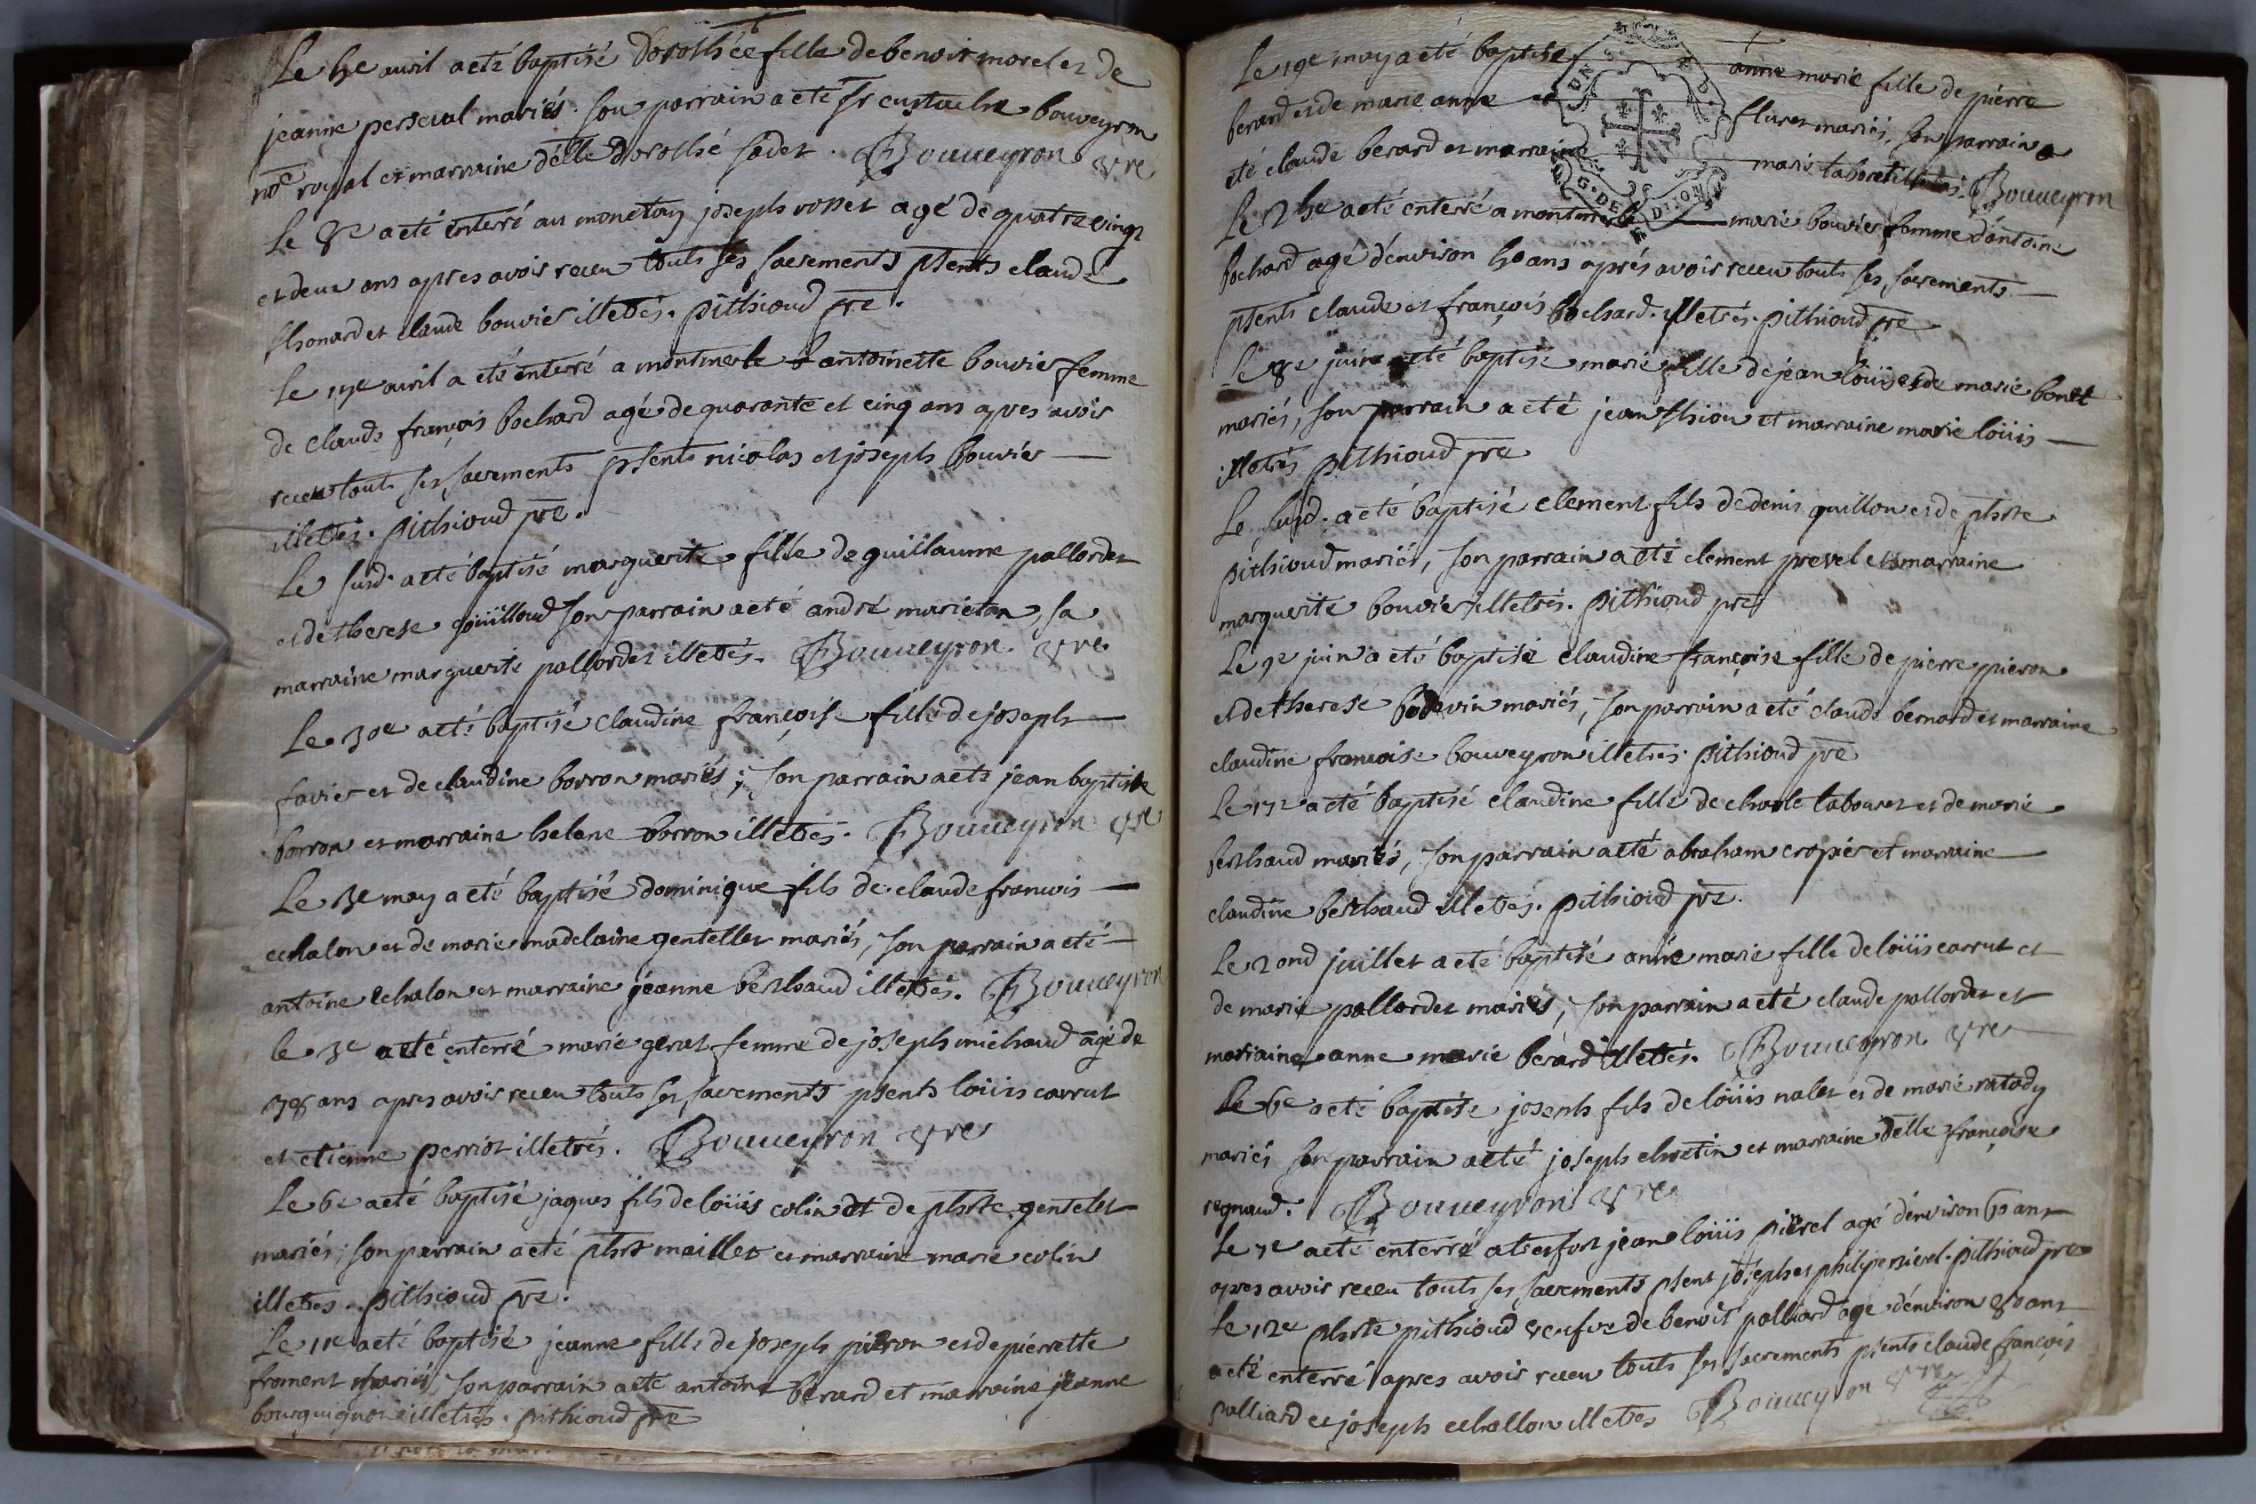 Le 4e avril a eté baptisé Dorothée fille de benoit morel et de
jeanne perseval mariés. son parrain a eté sr eustache bouveyron
nore royal et marraine delle Dorothé sadet. Bouueyron vre
Le 8e a eté enterré au monetay joseph rosset agé de quatre vingt
et deux ans apres avoir receu touts ses sacrements pñents claude
thonard et claude bouvier illetrés. pithioud pre.
Le 17e avril a eté enterré a montmerle antoinette bouvier femme
de claude françois bochard agé de quarante et cinq ans apres avoir
receu touts ses sacrements pñents nicolas et joseph bouvier
illetrés. pithioud pre.
Le susd. a eté baptisé marguerite fille de guillaume pallordet
et de therese son parrain a eté andré marietan, sa
marraine marguerite pallordet illetrés. Bouueyron vre
Le 30e a eté baptisé claudine françoise fille de joseph
favier et de claudine borron mariés; son parrain a eté jean baptiste
borron et marraine helene borron illetrés. Bouueyron vre
Le 3e may a eté baptisé dominique fils de claude françois
echalon et de marie madelaine gentellet mariés, son parrain a eté
antoine echalon et marraine jeanne berthaud illetrés. Bouueyron
le 5e a eté enterré marie gerat femme de joseph michaud agé de
78 ans apres avoir receu touts ses sacrements pñents loüis carrut
et etienne perriot illetrés. Bouueyron vre
Le 6e a eté baptisé jaques fils de loüis colin et de phrte gentelet
mariés; son parrain a eté phrt maillet et marraine marie colin
illetrés. pithioud pre.
Le 11e a eté baptisé jeanne fille de joseph pieron et de pierrette
froment mariés, son parrain a eté antoine berard et marraine jeanne
bourguignon illetrés. pithioud pre
Le 19e may a eté baptisé anne marie fille de pierre
berard et de marie anne fluret mariés, son parrain a
eté claude berard et marraine marie illetrés. Bouueyron
Le 24e a eté enterré a montmerle marie bouvier femme d'antoine
bochard agé d'environ 40 ans aprés avoir receu touts ses sacrements
pñents claude et françois bochard. illetrés. pithioud pre
Le 8e juin a eté baptisé marie fille de jean loüis et de marie bonet
mariés, son parrain a eté jean thiou et marraine marie loüis
illetrés pithioud pre
Le susd. a eté baptisé clement fils de denis quillon et de phrte
pithioud mariés, son parrain a eté clement prevel et marraine
marguerite bouvier illetrés. pithioud pre
Le 9e juin a eté baptisé claudine françoise fille de pierre pieron
et de therese bodevin mariés, son parrain a eté claude bernard et marraine
claudine françoise bouveyron illetrés. pithioud pre
Le 17e a eté baptisé claudine fille de charle labouret et de marie
berthaud mariés, son parrain a eté abraham cropier et marraine
claudine berthaud illetrés. pithioud pre.
Le 2ond juillet a eté baptisé anne marie fille de loüis carrut et
de marie pallordet mariés, son parrain a eté claude pallordet et
marraine anne marie berard illetrés. Bouueyron vre
Le 6e a eté baptisé joseph fils de loüis nalet et de marie ratody
mariés son parrain a eté joseph chretin et marraine delle françoise
regnaud. Bouueyron vre
Le 7e a eté enterré a trefort jean loüis pierel agé d'environ 60 ans
apres avoir receu touts ses sacrements pñent joseph et philipe pierel. pithioud pre
Le 12e phrte pithioud veufve de benoit palliard agé d'environ 80 ans
a eté enterré apres avoir receu touts ses sacrements pñents claude françois
palliard et joseph echallon illetrés Bouueyron vre
G. DE DIJON